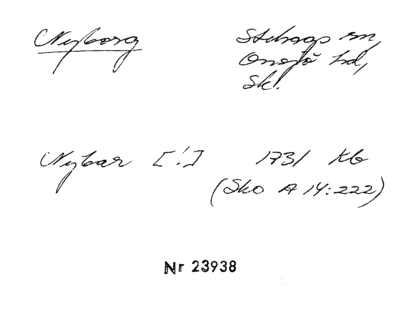 Nyborg Stehags sn,
Onsjö hd,
Sk.
Nybar [!] 1731 Kb
(Sko A 14:222)
Nr 23938